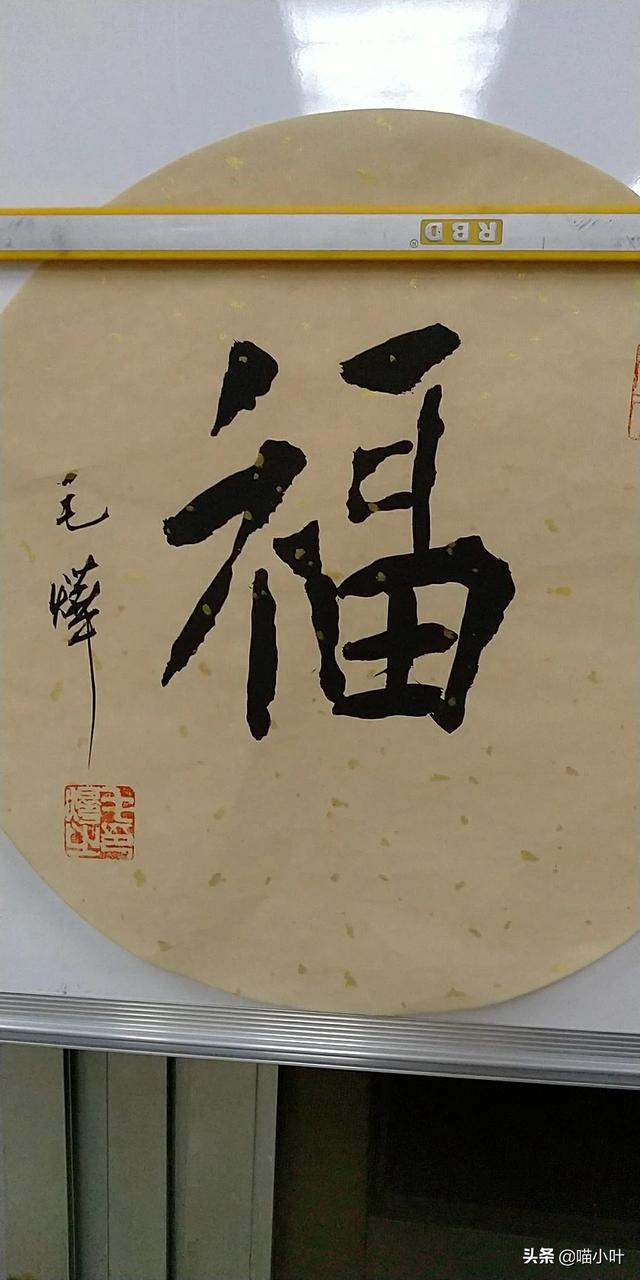 RBD
福
毛
头条 @喵小叶